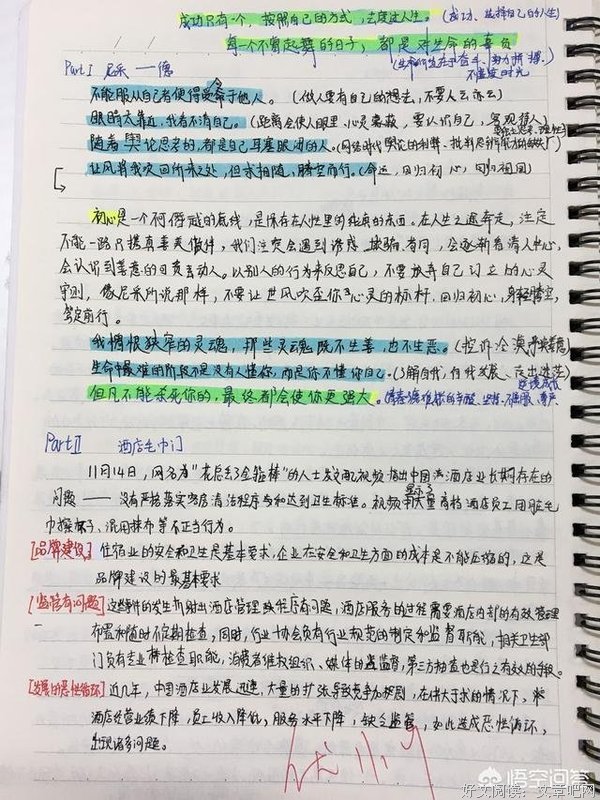 成功只有一个,按照自己的方式,去度过人生。(成功、选择自己的人生)
每一个不曾起舞的日子,都是对生命的辜负
不虚度时光
Part I 尼采——德
不能服从自己者便得受命于他人。(做人要有自己的想法,不要人云亦云)
眼睛无靠近,我看不清自己。(距离会使人眼里、心灵蒙蔽,要认识自己,客观待人)
随着舆论思考的,都是自己耳塞眼闭的人。
让风将我吹回所来之处,但求相随,腾空而行。(命运,回归初心,回归祖国)
初心是一个所得越的底线,是保存在人性里的纯真的东西。在人生之途奔走,注定
不能一路只揽真善美做伴,我们注定会遇到诱惑、欺骗,有间,会逐渐看清人中心,
会认识到美善的日夜去动人。以别人的行为来反思自己,不要放弃自己订立的心灵
守则,像尼采所说那样,不要让世风吹歪你心灵的标杆,回归初心,身轻腾空,
笃定前行。
我憎恨狭窄的灵魂,那些灵魂既不生善,也不生恶。
生命中最难的阶段不是没有人懂你,而是你不懂你自己。
但凡不能杀死你的,最终都会使你更强大。
Part II 酒店毛巾门
11月14日,网名为"花总丢了金箍棒"的人士发布视频指出中国酒店业长期存在的
问题——没有严格落实客房清洁程序和达到卫生标准。视频中大量高档酒店员工用脏毛
巾擦杯子、混用抹布等不正当行为。
[品牌建设] 住宿业的安全和卫生是基本要求,企业在安全和卫生方面的成本是不能压缩的,这是
品牌建设的最基本要求
[监管有问题] 这些事件的发生折射出酒店管理程序有问题,酒店服务的过程需要酒店内部的有效管理
布置和随时不定期检查,同时,行业协会负有行业规范的制定和监督职能,相关卫生部
门负有专业检查职能,消费者维权组织、媒体的监督,第三方抽查也是行之有效的手段。
[发展的恶性循环] 近几年,中国酒店业发展迅速,大量的扩张导致竞争加剧,在供大于求的情况下,
酒店经营业绩下降,员工收入降低,服务水平下降,缺乏监管,如此造成恶性循环,
出现诸多问题。
悟空问答
好文阅读:一文章吧网